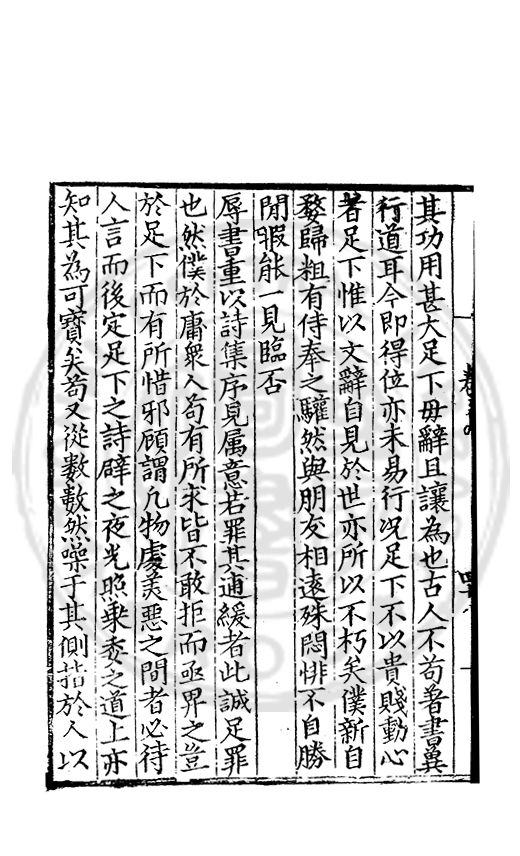 其功用甚大足下毋辭且讓為也古人不苟著書冀
行道耳今即得位亦未易行况足下不以貴賤動心
者足下惟以文辭自見於世亦所以不朽矣僕新自
婺歸粗有侍奉之驩然與朋友相遠殊悶悱不自勝
閒暇能一見臨否
辱書重以詩集序見属意若罪其逋緩者此誠足罪
也然僕於庸衆人苟有所求皆不敢拒而亟畀之豈
於足下而有所惜邪顧謂凡物處美惡之間者必待
人言而後定足下之詩辟之夜光照乗委之道上亦
知其為可寶矣苟又從數數然噪于其側指於人以